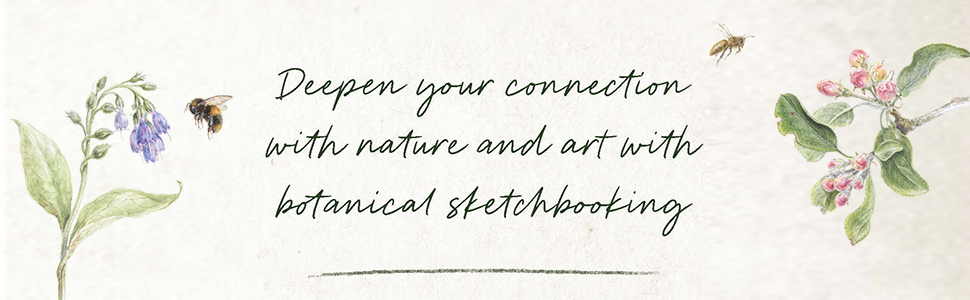 Deepen your connection
with nature and art with
botanical sketchbooking